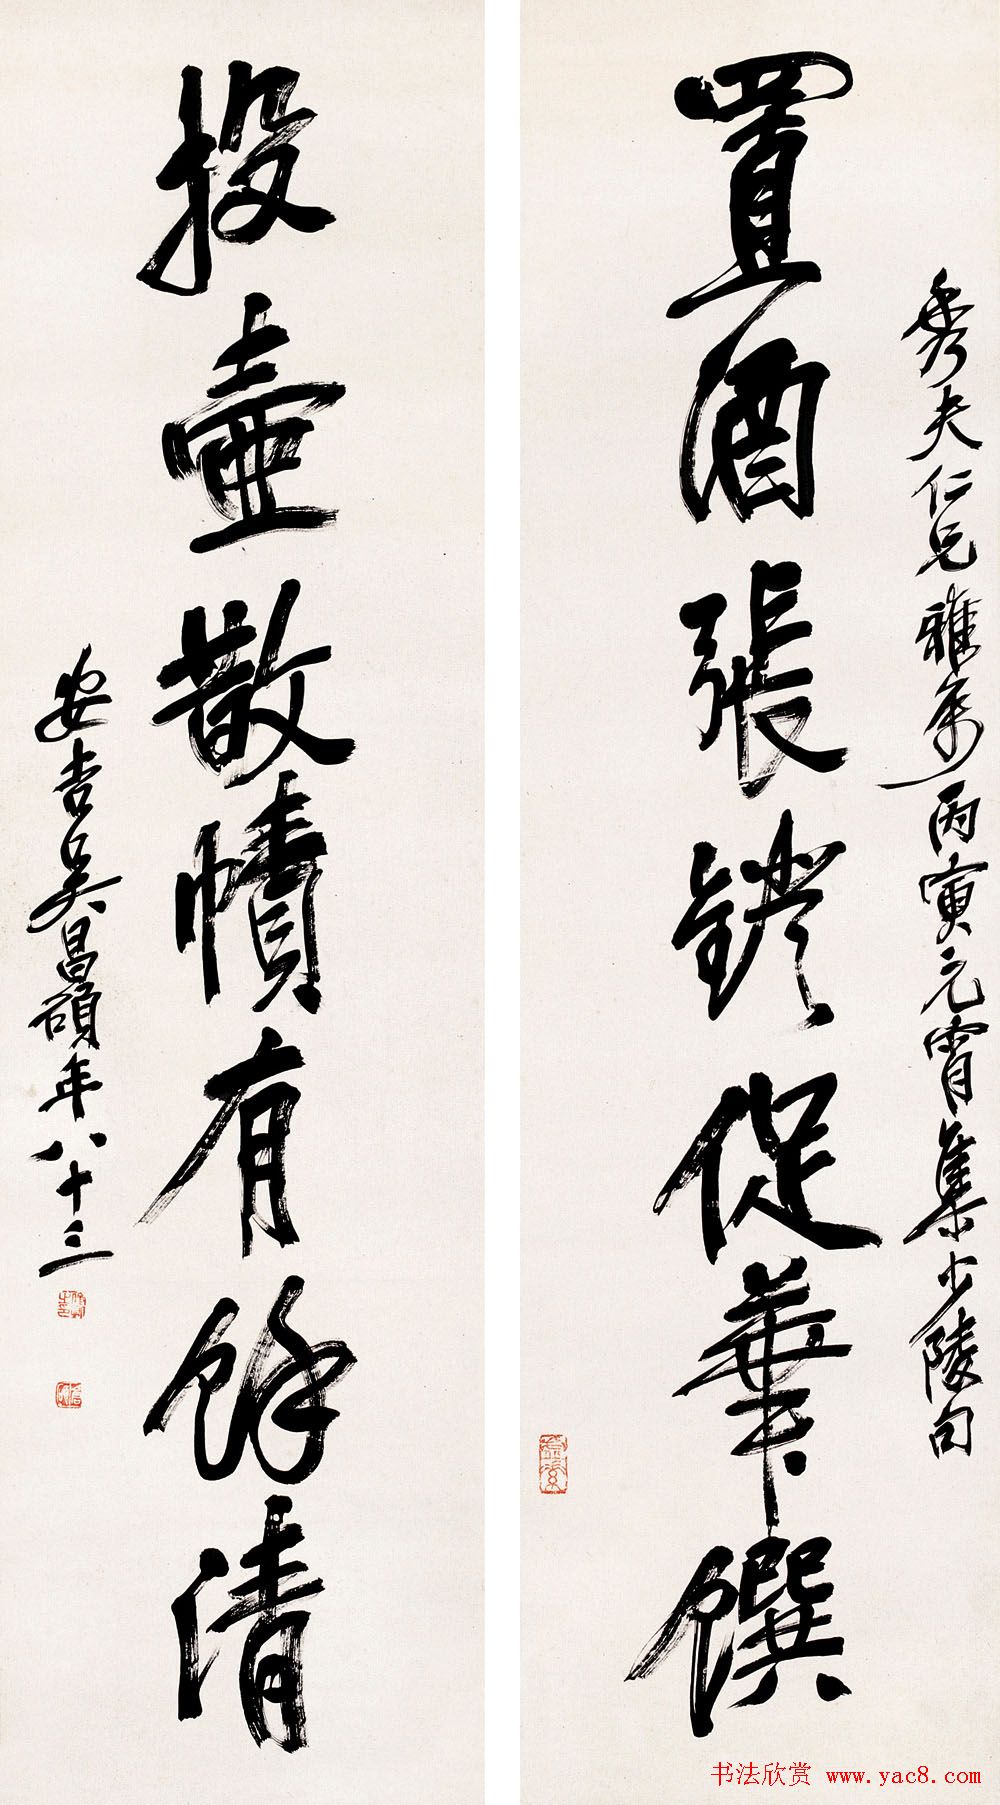 秀夫仁兄雅屬丙寅元宵集少陵句
置酒張鐙促華饌
投壺散帙有餘清
安吉吳昌碩年八十三
书法欣赏 www.yac8.com